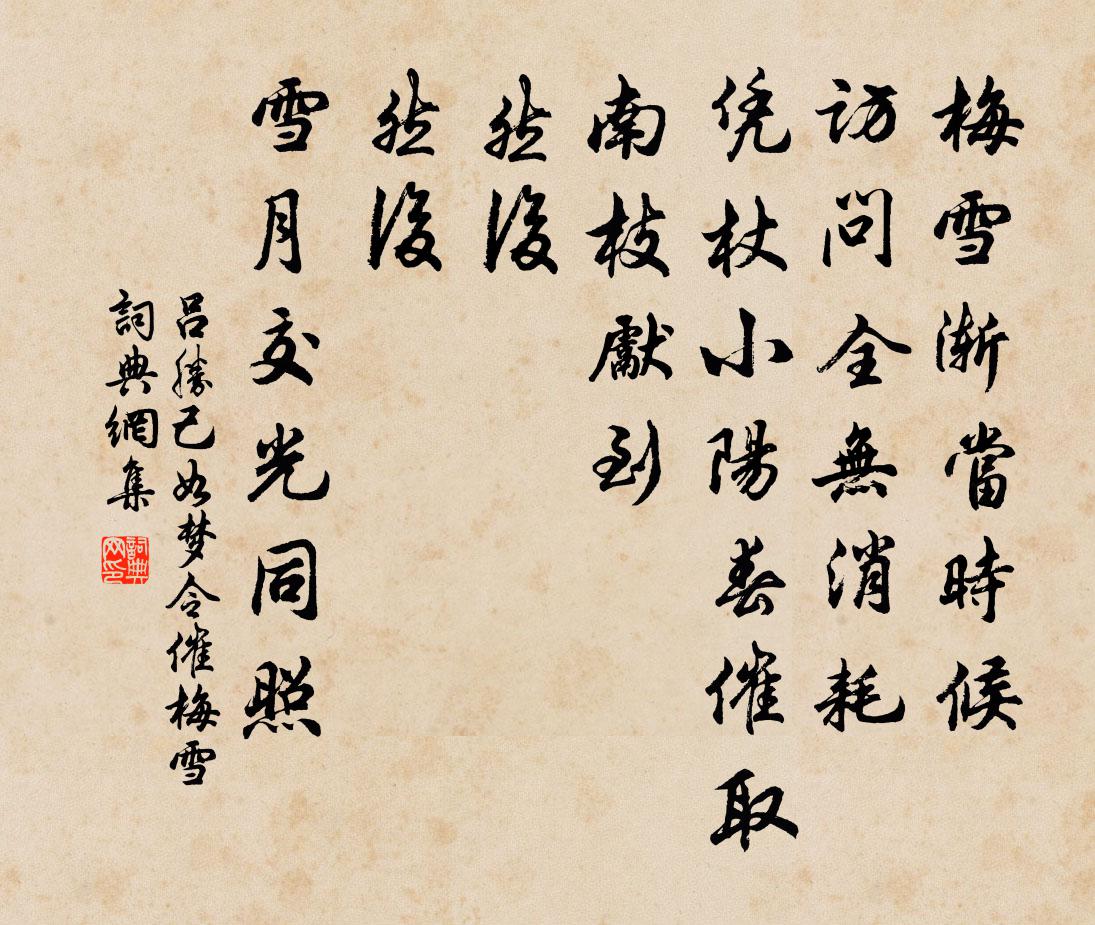 梅雪漸當時候
訪問全無消耗
凭杖小陽春催取
南枝獻到
然後
然後
雪月交光同照
呂勝己如梦令催梅雪
詞典網集
詞典网印